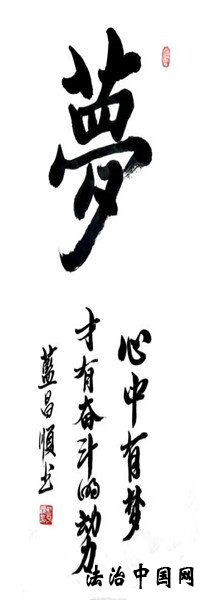 夢
心中有梦
才有奋斗的动力
藍昌順书
法治中国网